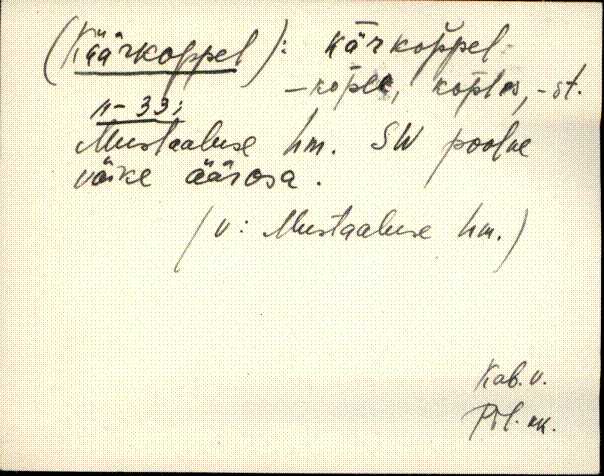 (Käärkoppel): kärkop̆pel
-kop̆le, kop̆les, -st.
n-33;
Mustaaluse hm. SW poolne
väike äärosa.
(v: Mustaaluse hm.)
Kab. v.
Pöl. kk.